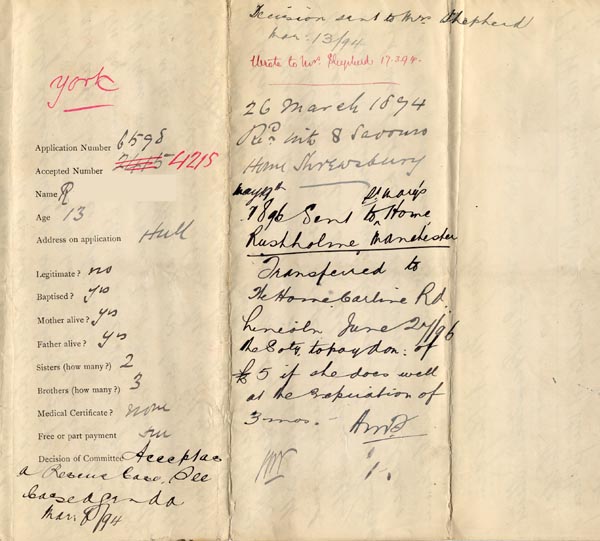 york
Application Number 6598
Accepted Number 4215
Name R
Age 13
Address on application Hull
Legitimate? no
Baptised? yes
Mother alive? yes
Father alive? yes
Sisters (how many?) 2
Brothers (how many?) 3
Medical Certificate? none
Free or part payment
Decision of Committee Accepted as
a Rescue Case. See
Case agenda
Mar: 8/94
Decision sent to Mrs Shepherd
Mar: 13/94
Wrote to Mrs Shepherd 17.3.94.
26 March 1894
Recd into S Saviours
Home Shrewsbury
May 19th St Mary's
1896 Sent to Home
Rusholme, Manchester
Transferred to
The Home Carline Rd.
Lincoln June 27/96
the Soty. to pay don: of
£5 if she does well
at the expiration of
3 mos.-